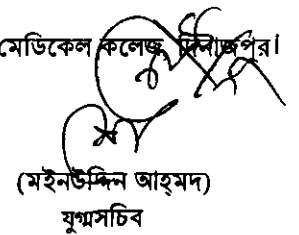 মেডিকেল কলেজ, দিনাজপুর।
(মইনউদ্দিন আহ্‌মদ)
যুগ্মসচিব